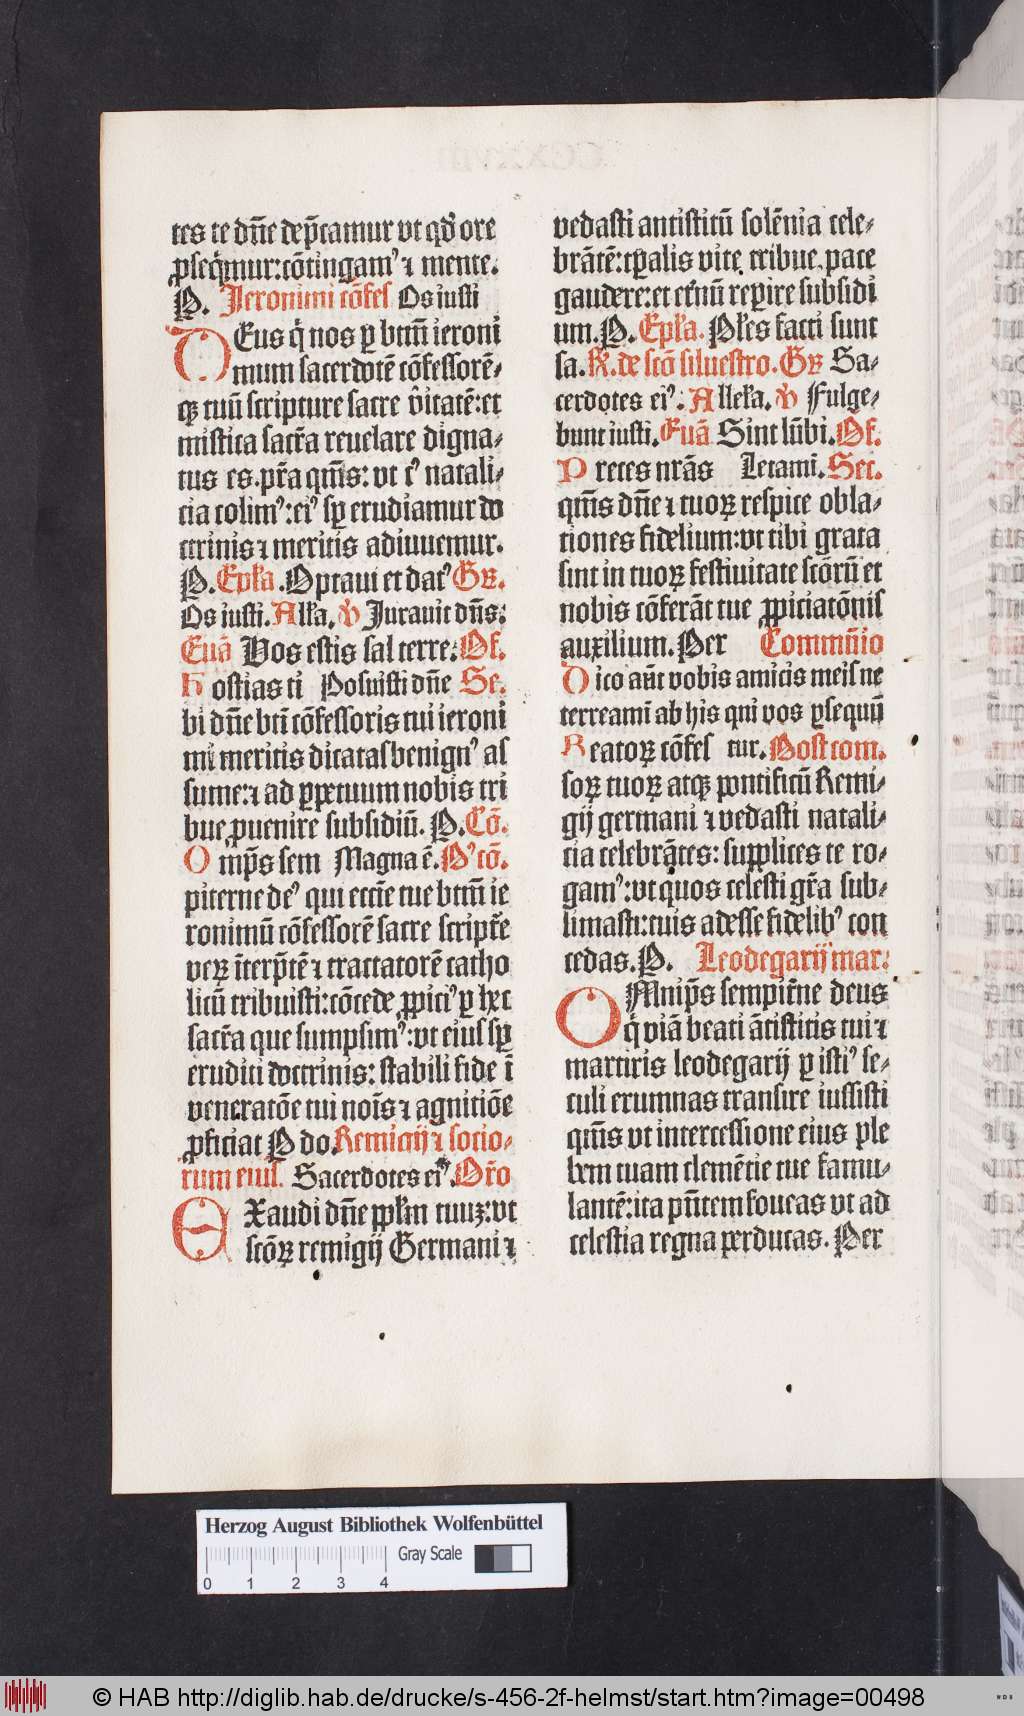 tes te dn̄e dep̄camur vt qđ ore
ꝑseq̄mur: cōtingamꝰ ⁊ mente.
P. Jeronimi cōfes Os iusti
DEus q̄ nos ꝑ btm̄ ieroni
mum sacerdotē cōfessorē⸗
qꝫ tuū scripture sacre v̄itatē: et
mistica sacr̄a reuelare digna⸗
tus es. pr̄a qm̄s: vt cꝰ natali⸗
cia colimꝰ: eiꝰ sꝑ erudiamur do
ctrinis ⁊ meritis adiuuemur.
P. Epl̄a. Optaui et datꝰ Gr̄.
Os iusti. All̄a. v̄ Jurauit dn̄s:
Euā Vos estis sal terre: Of.
Hostias ti Posuisti dn̄e Se.
bi dn̄e bti cōfessoris tui ieroni
mi meritis dicatas benignꝰ as
sume: ⁊ ad ꝑpetuum nobis tri
bue ꝓuenire subsidiū. P. Cō.
Omp̄s sem Magna ē. Pꝰcō.
piterne deꝰ qui eccl̄e tue btm̄ ie
ronimū cōfessorē sacre script̄e
veꝝ īterp̄tē ⁊ tractatorē catho
licū tribuisti: cōcede ꝓpiciꝰ ꝑ hec
sacr̄a que sumpsimꝰ: vt eius sꝑ
eruditi doctrinis: stabili fide ī
veneratōe tui nois̄ ⁊ agnitiōe
ꝓficiat P do. Remigij ⁊ socio⸗
rum eius. Sacerdotes eiꝰ. Or̄o
EXaudi dn̄e ppl̄m tuuꝫ: vt
scōꝝ remigij Germani ⁊
vedasti antistitū solēnia cele⸗
brātē: tꝑalis vite tribue pace
gaudere: et etn̄ū reperire subsidi
um. P. Epl̄a. Pl̄es facti sunt
sa. R̄. de scō siluestro. Gr̄ Sa⸗
cerdotes eiꝰ. Allel̄a. v̄ Fulge⸗
bunt iusti. Euā Sint lūbi. Of.
Preces nr̄as Letami. Sec.
qm̄s dn̄e ⁊ tuoꝝ respice obla⸗
tiones fidelium: vt tibi grata
sint in tuoꝝ festiuitate scōrū et
nobis cōferāt tue ꝓpiciatōnis
auxilium. Per Commūio
Dico aūt vobis amicis meis ne
terreamī ab his qui vos ꝑsequū
Reatoꝝ cōfes tur. Postcom.
soꝝ tuoꝝ atqꝫ pontificū Remi⸗
gij germani ⁊ vedasti natali⸗
cia celebrātes: supplices te ro⸗
gamꝰ: vt quos celesti gr̄a sub⸗
limasti: tuis adesse fidelibꝰ con
cedas. P. Leodegarij mar:
OMnip̄s sempit̄ne deus
q̄ viā beati ātistitis tui ⁊
martiris leodegarij ꝑ istiꝰ se⸗
culi erumnas transire iussisti
qm̄s vt intercessione eius ple
bem tuam clemētie tue famu⸗
lantē: ita pn̄tem foueas vt ad
celestia regna perducas. Per
Herzog August Bibliothek Wolfenbüttel
Gray Scale
0 1 2 3 4
© HAB http://diglib.hab.de/drucke/s-456-2f-helmst/start.htm?image=00498